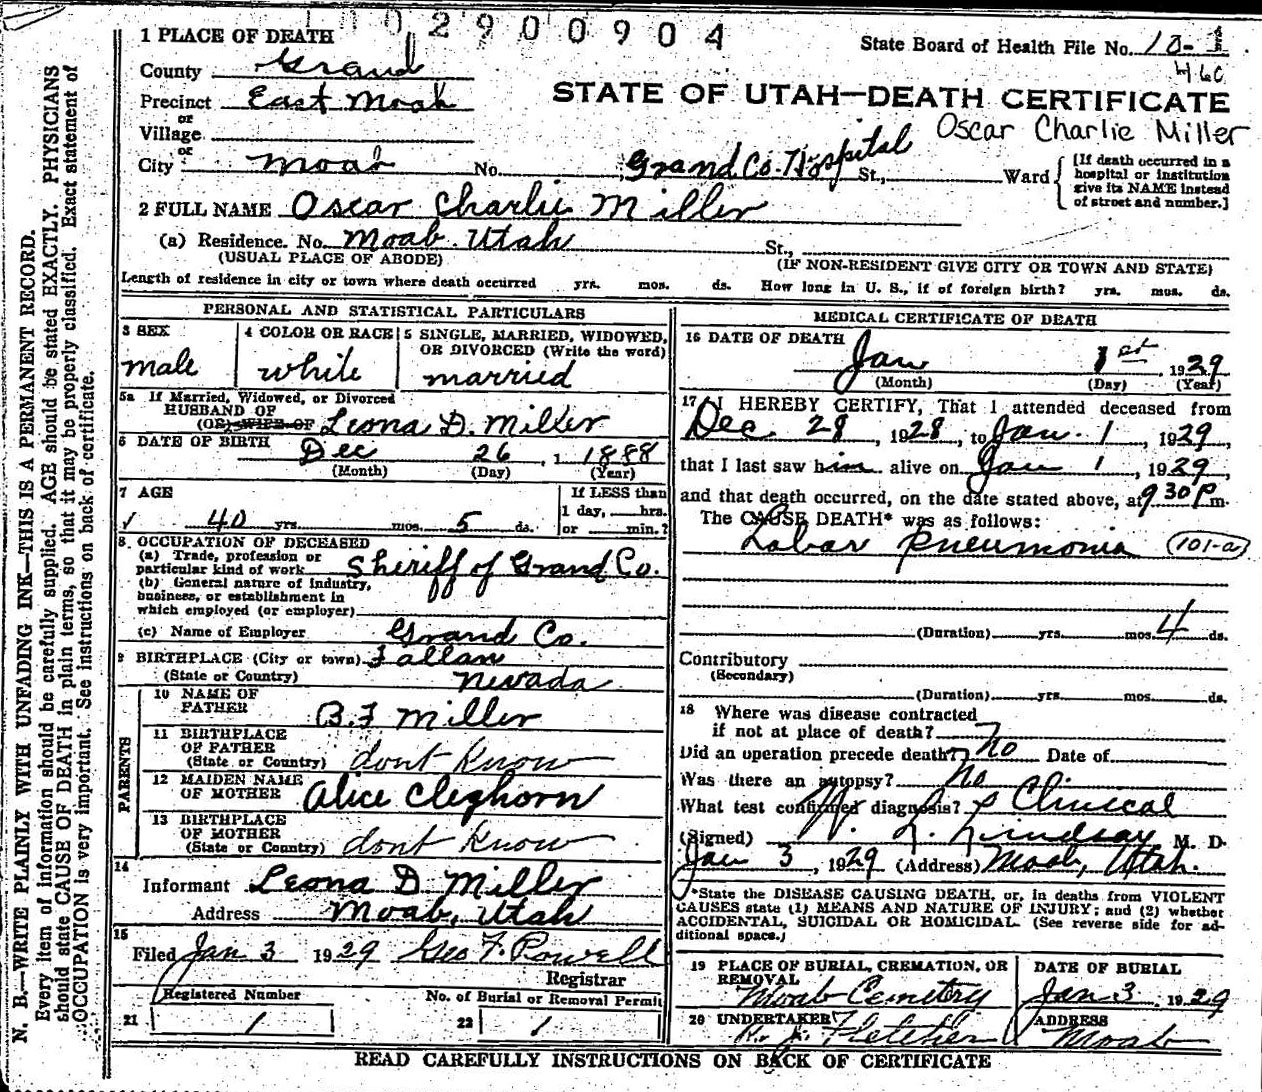 1 0 0 2 9 0 0 9 0 4
1 PLACE OF DEATH
State Board of Health File No. 10-1
460
County Grand
STATE OF UTAH—DEATH CERTIFICATE
Precinct East Moab
or
Village
Oscar Charlie Miller
or
City Moab No. Grand Co. Hospital St., Ward
[If death occurred in a
hospital or institution
give its NAME instead
of street and number.]
2 FULL NAME Oscar Charlie Miller
(a) Residence. No. Moab. Utah St.,
(USUAL PLACE OF ABODE) (IF NON-RESIDENT GIVE CITY OR TOWN AND STATE)
Length of residence in city or town where death occurred yrs. mos. ds. How long in U. S., if of foreign birth? yrs. mos. ds.
PERSONAL AND STATISTICAL PARTICULARS
3 SEX 4 COLOR OR RACE 5 SINGLE, MARRIED, WIDOWED,
OR DIVORCED (Write the word)
male white married
5a If Married, Widowed, or Divorced
HUSBAND OF
(OR) WIFE OF Leona D. Miller
6 DATE OF BIRTH Dec 26, 1888
(Month) (Day) (Year)
7 AGE If LESS than
1 day, hrs.
√ 40 yrs. mos. 5 ds. or min.?
8. OCCUPATION OF DECEASED
(a) Trade, profession or
particular kind of work Sheriff of Grand Co.
(b) General nature of industry,
business, or establishment in
which employed (or employer)
(c) Name of Employer Grand Co.
9 BIRTHPLACE (City or town) Fallan
(State or Country) Nevada
PARENTS
10 NAME OF
FATHER B. F Miller
11 BIRTHPLACE
OF FATHER
(State or Country) dont Know
12 MAIDEN NAME
OF MOTHER Alice Cleghorn
13 BIRTHPLACE
OF MOTHER
(State or Country) dont Know
14
Informant Leona D Miller
Address Moab, Utah
15
Filed Jan 3 1929 Geo F. Powell
Registrar
Registered Number No. of Burial or Removal Permit
21 1 22 1
MEDICAL CERTIFICATE OF DEATH
16 DATE OF DEATH
Jan 1st, 1929
(Month) (Day) (Year)
17 I HEREBY CERTIFY, That I attended deceased from
Dec 28, 1928, to Jan. 1, 1929,
that I last saw him alive on Jan 1, 1929,
and that death occurred, on the date stated above, at 9 30 P m.
The CAUSE DEATH* was as follows:
Lobar pneumonia (101-a)
(Duration) yrs. mos. 4 ds.
Contributory
(Secondary)
(Duration) yrs. mos. ds.
18 Where was disease contracted
if not at place of death? ?
Did an operation precede death? no Date of
Was there an autopsy? No
What test confirmed diagnosis? Clinical
(Signed) W. L. Lindsay M. D.
Jan 3, 1929 (Address) Moab, Utah.
*State the DISEASE CAUSING DEATH, or, in deaths from VIOLENT
CAUSES state (1) MEANS AND NATURE OF INJURY; and (2) whether
ACCIDENTAL, SUICIDAL OR HOMICIDAL. (See reverse side for ad-
ditional space.)
19 PLACE OF BURIAL, CREMATION, OR
REMOVAL
Moab Cemetry
DATE OF BURIAL
Jan 3 1929
20 UNDERTAKER
Fletcher
ADDRESS
Moab
READ CAREFULLY INSTRUCTIONS ON BACK OF CERTIFICATE
N. B.—WRITE PLAINLY WITH UNFADING INK—THIS IS A PERMANENT RECORD.
Every item of information should be carefully supplied. AGE should be stated EXACTLY. PHYSICIANS
should state CAUSE OF DEATH in plain terms, so that it may be properly classified. Exact statement of
OCCUPATION is very important. See instructions on back of certificate.